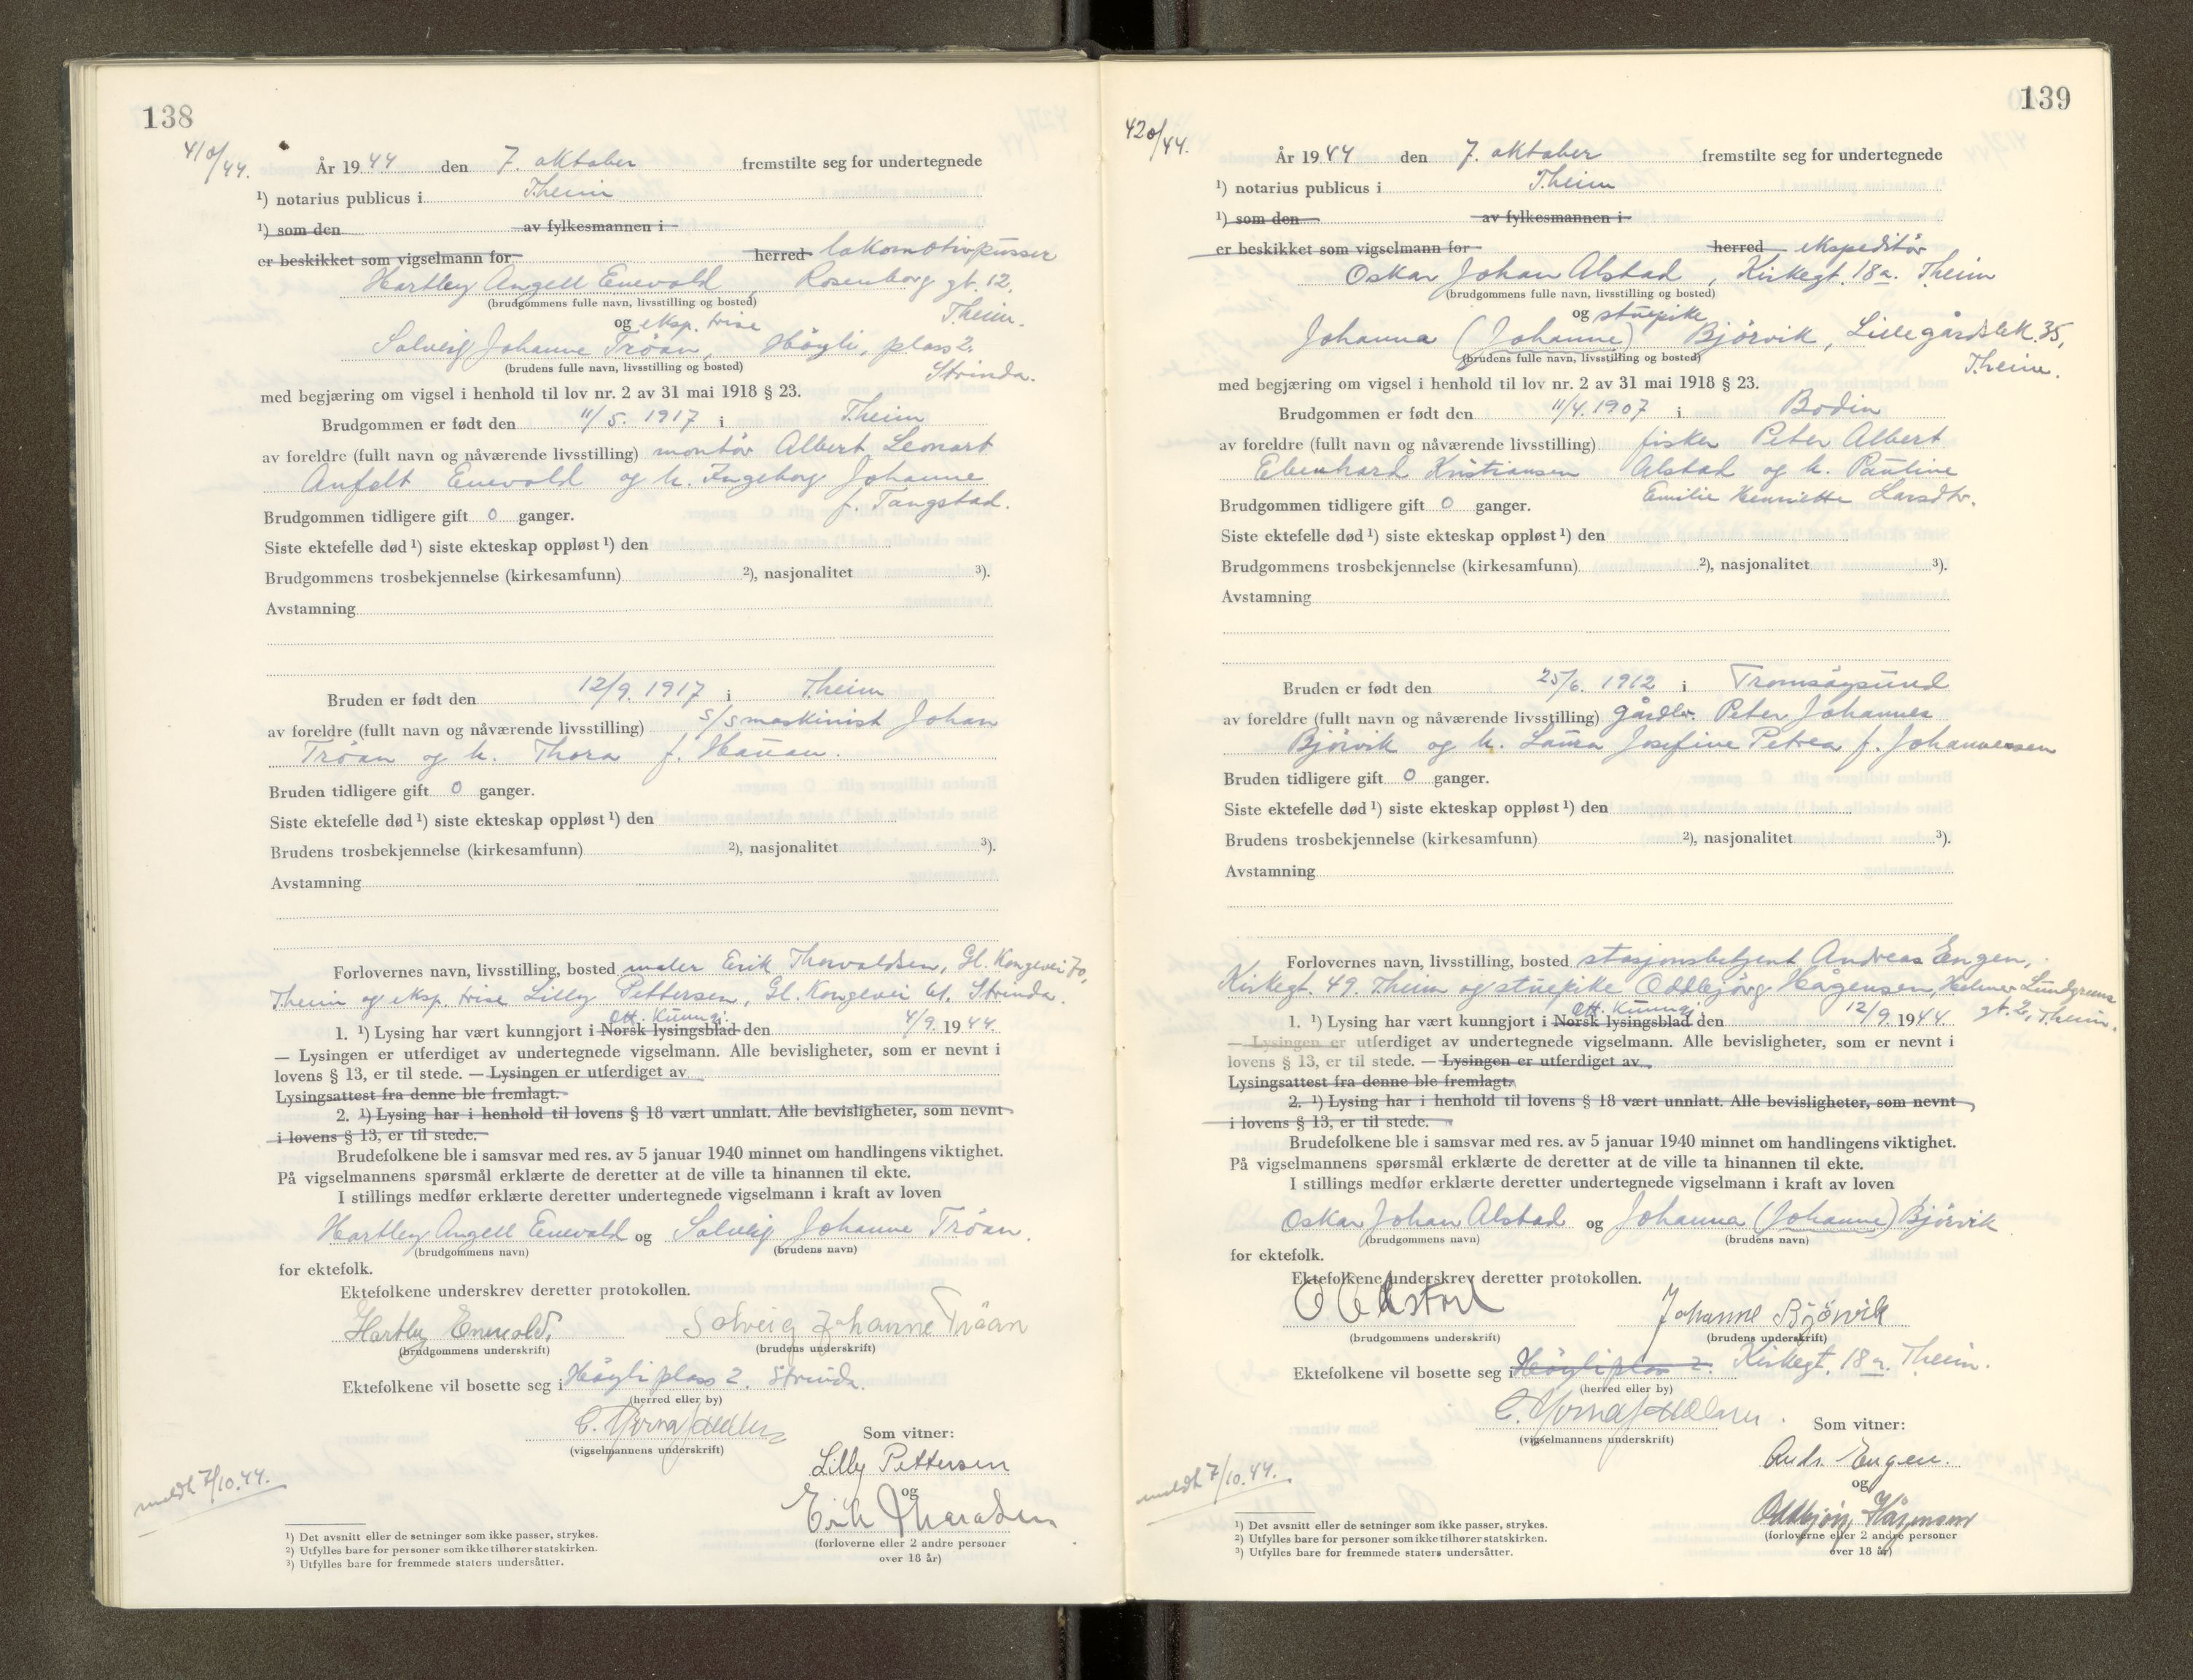 138
410/44.
År 1944 den 7. oktober fremstilte seg for undertegnede
¹) notarius publicus i T.heim
¹) som den av fylkesmannen i
er beskikket som vigselmann for herred lokomotivpusser
Hartley Angell Enevold, Rosenborg gt. 12,
(brudgommens fulle navn, livsstilling og bosted)
T.heim.
og eksp. trise
Solveig Johanne Tröan, Höyli, plass 2.
(brudens fulle navn, livsstilling og bosted)
Strinda.
med begjæring om vigsel i henhold til lov nr. 2 av 31 mai 1918 § 23.
Brudgommen er født den 11/5. 1917 i T.heim
av foreldre (fullt navn og nåværende livsstilling) montör Albert Leonart
Anfelt Enevold og h. Ingeborg Johanne
f. Tangstad.
Brudgommen tidligere gift 0 ganger.
Siste ektefelle død¹) siste ekteskap oppløst¹) den
Brudgommens trosbekjennelse (kirkesamfunn) ²), nasjonalitet ³).
Avstamning
Bruden er født den 12/9. 1917 i T.heim
av foreldre (fullt navn og nåværende livsstilling) s/s maskinist Johan
Tröan og h. Thora f. Hauan.
Bruden tidligere gift 0 ganger.
Siste ektefelle død¹) siste ekteskap oppløst¹) den
Brudens trosbekjennelse (kirkesamfunn) ²), nasjonalitet ³).
Avstamning
Forlovernes navn, livsstilling, bosted maler Erik Thorvaldsen, Gl. Kongevei 70,
T.heim og eksp. trise Lilly Pettersen, Gl. Kongevei 61. Strinda.
Off. Kunngj.
1. ¹) Lysing har vært kunngjort i Norsk lysingsblad den 4/9. 1944.
— Lysingen er utferdiget av undertegnede vigselmann. Alle bevisligheter, som er nevnt i
lovens § 13, er til stede. — Lysingen er utferdiget av
Lysingsattest fra denne ble fremlagt.
2. ¹) Lysing har i henhold til lovens § 18 vært unnlatt. Alle bevisligheter, som nevnt
i lovens § 13, er til stede.
Brudefolkene ble i samsvar med res. av 5 januar 1940 minnet om handlingens viktighet.
På vigselmannens spørsmål erklærte de deretter at de ville ta hinannen til ekte.
I stillings medfør erklærte deretter undertegnede vigselmann i kraft av loven
Hartley Angell Enevold og Solveig Johanne Tröan.
(brudgommens navn) (brudens navn)
for ektefolk.
Ektefolkene underskrev deretter protokollen.
Hartley Enevold. Solveig Johanne Tröan
(brudgommens underskrift) (brudens underskrift)
Ektefolkene vil bosette seg i Höyli plass 2. Strinda.
(herred eller by)
(vigselmannens underskrift)
Som vitner:
Lilly Pettersen
og
Erik Thorvaldsen
(forloverne eller 2 andre personer
over 18 år)
meldt 7/10.44.
¹) Det avsnitt eller de setninger som ikke passer, strykes.
²) Utfylles bare for personer som ikke tilhører statskirken.
³) Utfylles bare for fremmede staters undersåtter.
139
420/44.
År 1944 den 7. oktober fremstilte seg for undertegnede
¹) notarius publicus i T.heim
¹) som den av fylkesmannen i
er beskikket som vigselmann for herred ekspeditör
Oskar Johan Alstad, Kirkegt. 18a. T.heim
(brudgommens fulle navn, livsstilling og bosted)
og stuepike
Johanna (Johanne) Björvik, Lillegårdsbk. 35,
(brudens fulle navn, livsstilling og bosted)
T.heim.
med begjæring om vigsel i henhold til lov nr. 2 av 31 mai 1918 § 23.
Brudgommen er født den 11/4. 1907 i Bodin
av foreldre (fullt navn og nåværende livsstilling) fisker Peter Albert
Ebenhard Kristiansen Alstad og h. Pauline
Emilie Henriette Larsdtr.
Brudgommen tidligere gift 0 ganger.
Siste ektefelle død¹) siste ekteskap oppløst¹) den
Brudgommens trosbekjennelse (kirkesamfunn) ²), nasjonalitet ³).
Avstamning
Bruden er født den 25/6. 1912 i Tromsöysund
av foreldre (fullt navn og nåværende livsstilling) gårdbr. Peter Johannes
Björvik og h. Laura Josefine Petrea f. Johannessen
Bruden tidligere gift 0 ganger.
Siste ektefelle død¹) siste ekteskap oppløst¹) den
Brudens trosbekjennelse (kirkesamfunn) ²), nasjonalitet ³).
Avstamning
Forlovernes navn, livsstilling, bosted stasjonsbetjent Andreas Engen,
Kirkegt. 49. T.heim og stuepike Oddbjörg Hågensen, Helmer Lundgrens
gt. 2, T.heim.
Off. Kunngj.
1. ¹) Lysing har vært kunngjort i Norsk lysingsblad den 12/9. 1944.
— Lysingen er utferdiget av undertegnede vigselmann. Alle bevisligheter, som er nevnt i
lovens § 13, er til stede. — Lysingen er utferdiget av
Lysingsattest fra denne ble fremlagt.
2. ¹) Lysing har i henhold til lovens § 18 vært unnlatt. Alle bevisligheter, som nevnt
i lovens § 13, er til stede.
Brudefolkene ble i samsvar med res. av 5 januar 1940 minnet om handlingens viktighet.
På vigselmannens spørsmål erklærte de deretter at de ville ta hinannen til ekte.
I stillings medfør erklærte deretter undertegnede vigselmann i kraft av loven
Oskar Johan Alstad og Johanna (Johanne) Björvik
(brudgommens navn) (brudens navn)
for ektefolk.
Ektefolkene underskrev deretter protokollen.
O Alstad Johanne Björvik
(brudgommens underskrift) (brudens underskrift)
Ektefolkene vil bosette seg i Höyli plass 2. Kirkegt. 18a. T.heim.
(herred eller by)
(vigselmannens underskrift)
Som vitner:
Andr. Engen.
og
Oddbjörg Hågensen
(forloverne eller 2 andre personer
over 18 år)
meldt 7/10.44.
¹) Det avsnitt eller de setninger som ikke passer, strykes.
²) Utfylles bare for personer som ikke tilhører statskirken.
³) Utfylles bare for fremmede staters undersåtter.